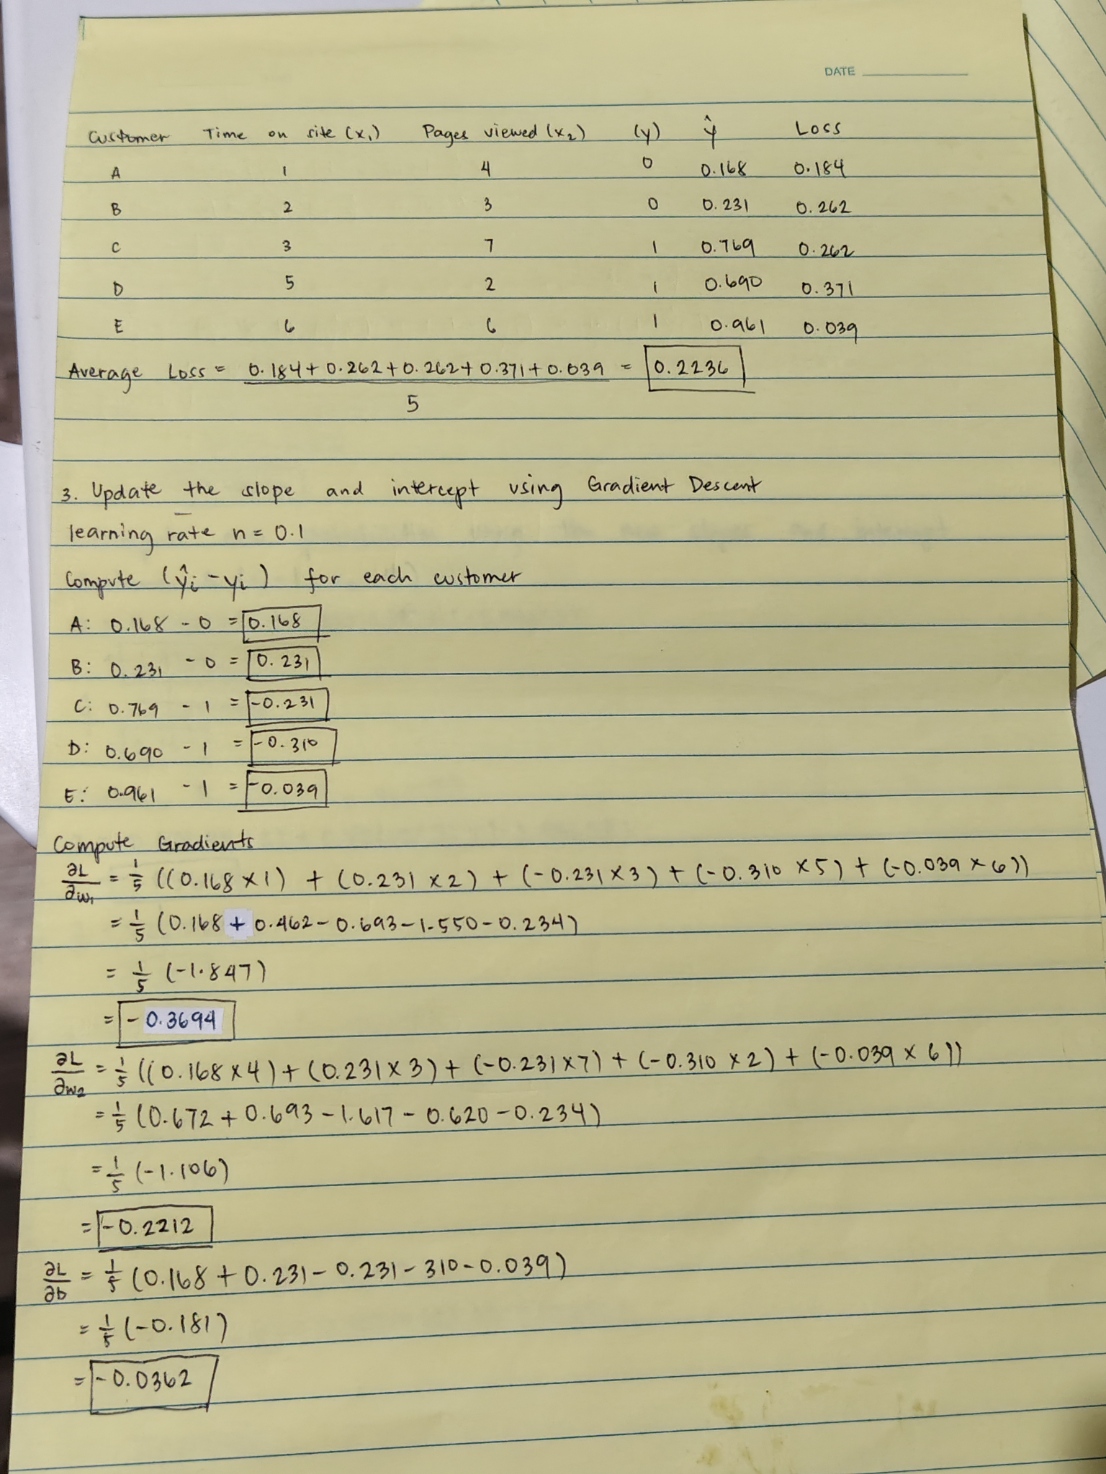 DATE
Customer Time on site (x₁) Pages viewed (x₂) (y) ŷ Loss
A 1 4 0 0.168 0.184
B 2 3 0 0.231 0.262
C 3 7 1 0.769 0.262
D 5 2 1 0.690 0.371
E 6 6 1 0.961 0.039
Average Loss = 0.184 + 0.262 + 0.262 + 0.371 + 0.039 = 0.2236
5
3. Update the slope and intercept using Gradient Descent
learning rate n = 0.1
Compute (ŷi - yi) for each customer
A: 0.168 - 0 = 0.168
B: 0.231 - 0 = 0.231
C: 0.769 - 1 = -0.231
D: 0.690 - 1 = -0.310
E: 0.961 - 1 = -0.039
Compute Gradients
∂L/∂w₁ = 1/5 ((0.168 × 1) + (0.231 × 2) + (-0.231 × 3) + (-0.310 × 5) + (-0.039 × 6))
= 1/5 (0.168 + 0.462 - 0.693 - 1.550 - 0.234)
= 1/5 (-1.847)
= -0.3694
∂L/∂w₂ = 1/5 ((0.168 × 4) + (0.231 × 3) + (-0.231 × 7) + (-0.310 × 2) + (-0.039 × 6))
= 1/5 (0.672 + 0.693 - 1.617 - 0.620 - 0.234)
= 1/5 (-1.106)
= -0.2212
∂L/∂b = 1/5 (0.168 + 0.231 - 0.231 - 310 - 0.039)
= 1/5 (-0.181)
= -0.0362